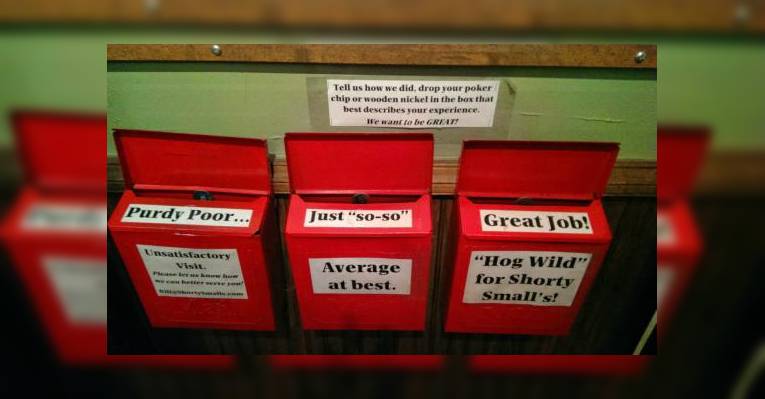 Tell us how we did, drop your poker
chip or wooden nickel in the box that
best describes your experience.
We want to be GREAT!
Purdy Poor...
Just "so-so"
Great Job!
Unsatisfactory
Visit.
Please let us know how
we can better serve you!
Bill@ShortySmalls.com
Average
at best.
"Hog Wild"
for Shorty
Small's!